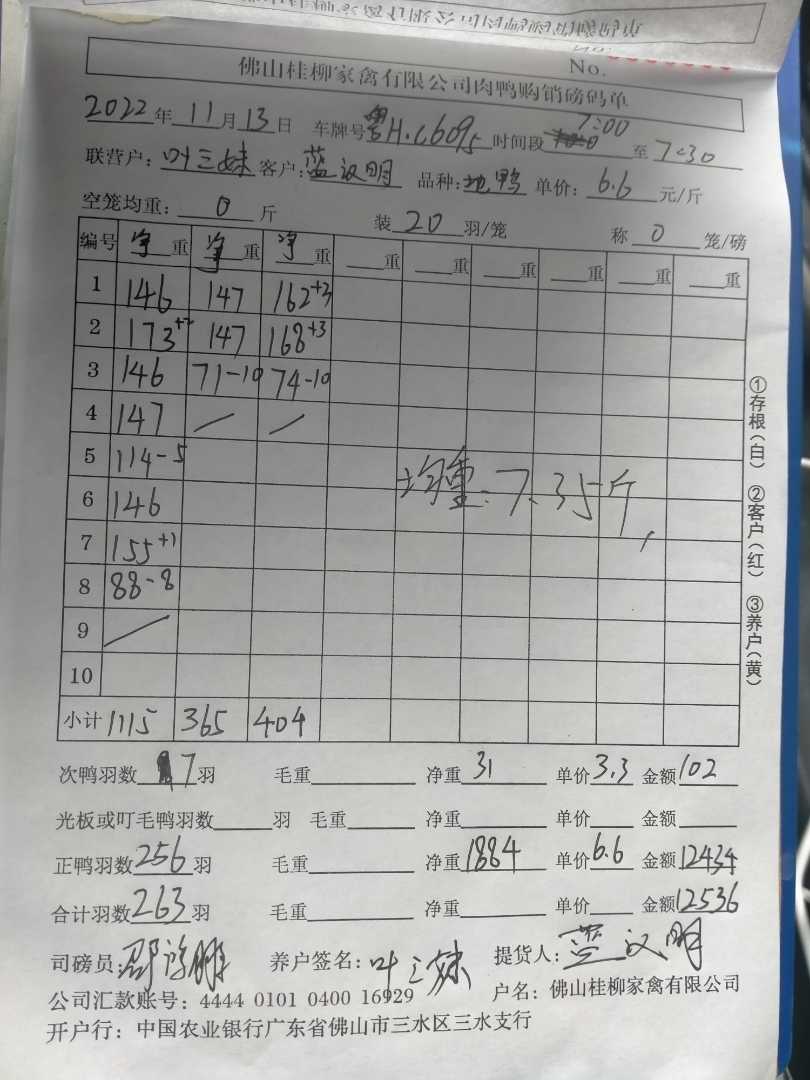 No.
佛山桂柳家禽有限公司肉鸭购销磅码单
2022年11月13日 车牌号粤H.C6095 时间段 7:00 至 7:30
联营户:叶三妹 客户:蓝汉明 品种:地鸭 单价:6.6元/斤
空笼均重:0斤 装20羽/笼 称0笼/磅
编号 净重 净重 净重 重 重 重 重 重 重
1 146 147 162+3
2 173 147 168+3
3 146 71-10 74-10
4 147 / /
5 114-5
6 146
7 155+1
8 88-8
9 /
10
小计 1115 365 404
均重:7.35斤
①存根(白) ②客户(红) ③养户(黄)
次鸭羽数7羽 毛重 净重31 单价3.3 金额102
光板或叮毛鸭羽数 羽 毛重 净重 单价 金额
正鸭羽数256羽 毛重 净重1884 单价6.6 金额12434
合计羽数263羽 毛重 净重 单价 金额12536
司磅员: 养户签名:叶三妹 提货人:蓝汉明
公司汇款账号:4444 0101 0400 16929 户名:佛山桂柳家禽有限公司
开户行:中国农业银行广东省佛山市三水区三水支行